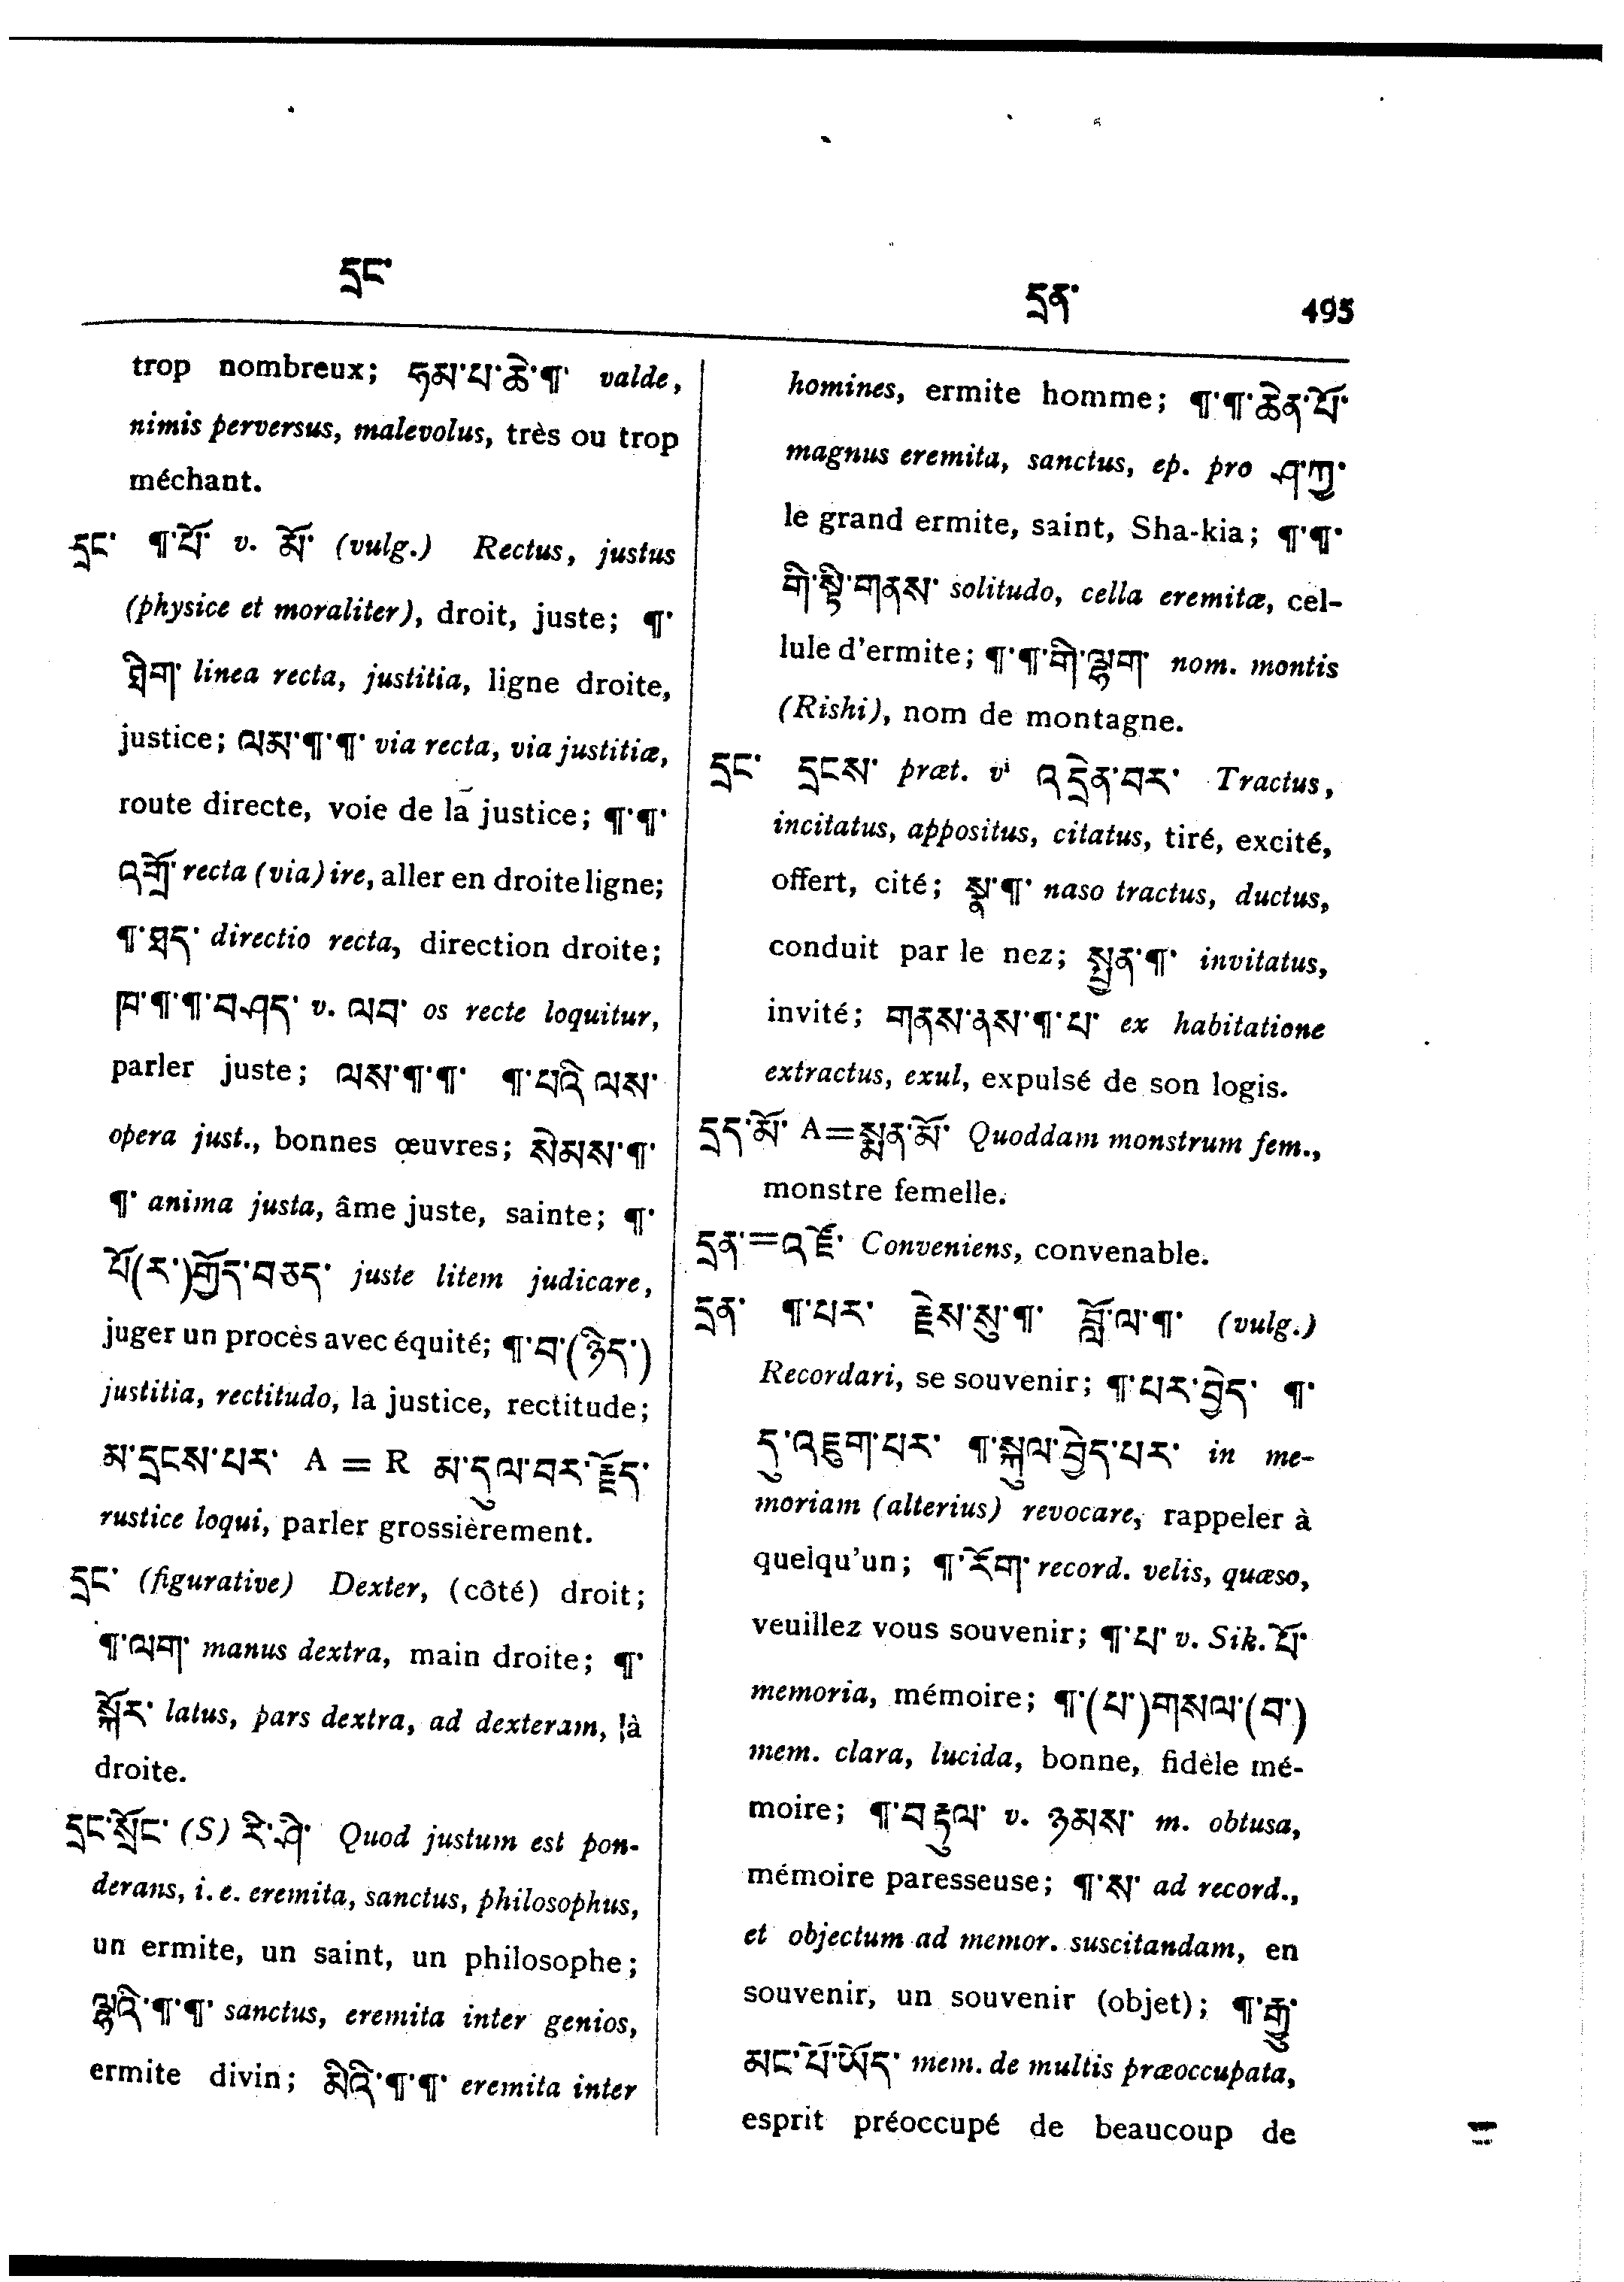 དྲང་
དྲན་ 495
trop nombreux; ཧམ་པ་ཆེ་¶་ valde,
nimis perversus, malevolus, très ou trop
méchant.
དྲང་ ¶་པོ་ v. མོ་ (vulg.) Rectus, justus
(physice et moraliter), droit, juste; ¶་
ཐིག་ linea recta, justitia, ligne droite,
justice; ལམ་¶་¶་ via recta, via justitiæ,
route directe, voie de la justice; ¶་¶་
འགྲོ་ recta (via) ire, aller en droite ligne;
¶་ཐད་ directio recta, direction droite;
ཁ་¶་¶་བཤད་ v. ལབ་ os recte loquitur,
parler juste; ལས་¶་¶་ ¶་པའི་ལས་
opera just., bonnes œuvres; སེམས་¶་
¶་ anima justa, âme juste, sainte; ¶་
པོ(ར་)གྱོད་བཅད་ juste litem judicare,
juger un procès avec équité; ¶་བ་(ཉིད་)
justitia, rectitudo, la justice, rectitude;
མ་དྲངས་པར་ A = R མ་དུལ་བར་རྗོད་
rustice loqui, parler grossièrement.
དྲང་ (figurative) Dexter, (côté) droit;
¶་ལག་ manus dextra, main droite; ¶་
སྐོར་ latus, pars dextra, ad dexteram, à
droite.
དྲང་སྲོང་ (S) རི་ཤི་ Quod justum est pon-
derans, i. e. eremita, sanctus, philosophus,
un ermite, un saint, un philosophe;
ལྷའི་¶་¶་ sanctus, eremita inter genios,
ermite divin; མིའི་¶་¶་ eremita inter
homines, ermite homme; ¶་¶་ཆེན་པོ་
magnus eremita, sanctus, ep. pro ཤ་ཀྱ་
le grand ermite, saint, Sha-kia; ¶་¶་
གི་སྟི་གནས་ solitudo, cella eremitæ, cel-
lule d'ermite; ¶་¶་གི་ལྷག་ nom. montis
(Rishi), nom de montagne.
དྲང་ དྲངས་ præt. v འདྲེན་བར་ Tractus,
incitatus, appositus, citatus, tiré, excité,
offert, cité; སྣ་¶་ naso tractus, ductus,
conduit par le nez; སྤྱན་¶་ invitatus,
invité; གནས་ནས་¶་པ་ ex habitatione
extractus, exul, expulsé de son logis.
དྲད་མོ་ A=སྨན་མོ་ Quoddam monstrum fem.,
monstre femelle.
དྲན་=འཛོ་ Conveniens, convenable.
དྲན་ ¶་པར་ རྗེས་སུ་¶་ བློ་ལ་¶་ (vulg.)
Recordari, se souvenir; ¶་པར་བྱེད་ ¶་
དུ་འཇུག་པར་ ¶་སྐུལ་བྱེད་པར་ in me-
moriam (alterius) revocare, rappeler à
quelqu'un; ¶་རོག་ record. velis, quæso,
veuillez vous souvenir; ¶་པ་ v. Sik. པོ་
memoria, mémoire; ¶་(པ་)གསལ་(བ་)
mem. clara, lucida, bonne, fidèle mé-
moire; ¶་བརྟུལ་ v. ཉམས་ m. obtusa,
mémoire paresseuse; ¶་ས་ ad record.,
et objectum ad memor. suscitandam, en
souvenir, un souvenir (objet); ¶་རྒྱུ་
མང་པོ་ཡོད་ mem. de multis præoccupata,
esprit préoccupé de beaucoup de